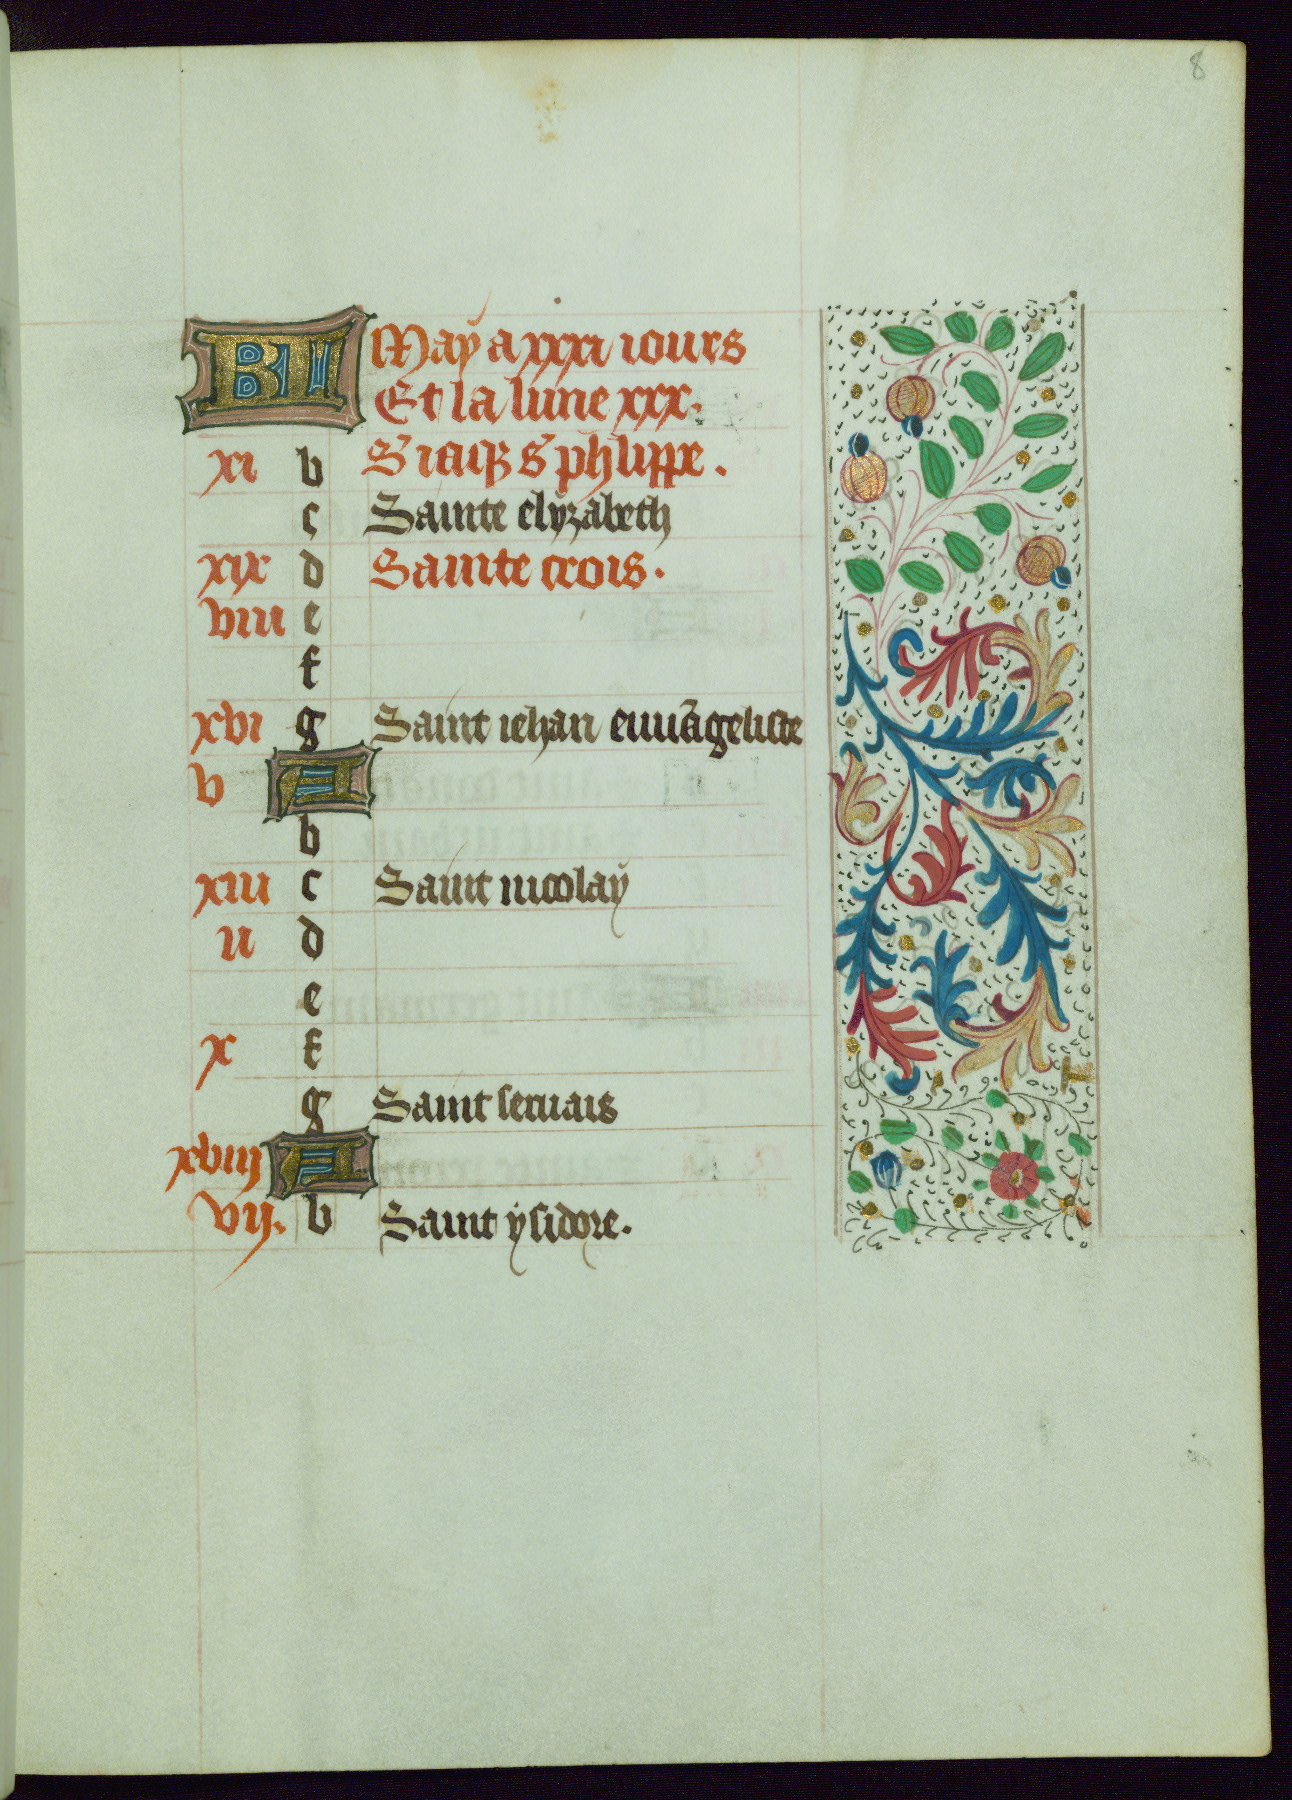 8
KL May a xxxi iours
Et la lune xxx.
xi b S iaq̄ S phlippe.
c Sainte elyzabeth
xix d Sainte crois.
viii e
f
xvi g Saint iehan euuāgeliste
v A
b
xiii c Saint nicolay
ii d
e
x f
g Saint seruais
xviij A
vij. b Saint ysidore.